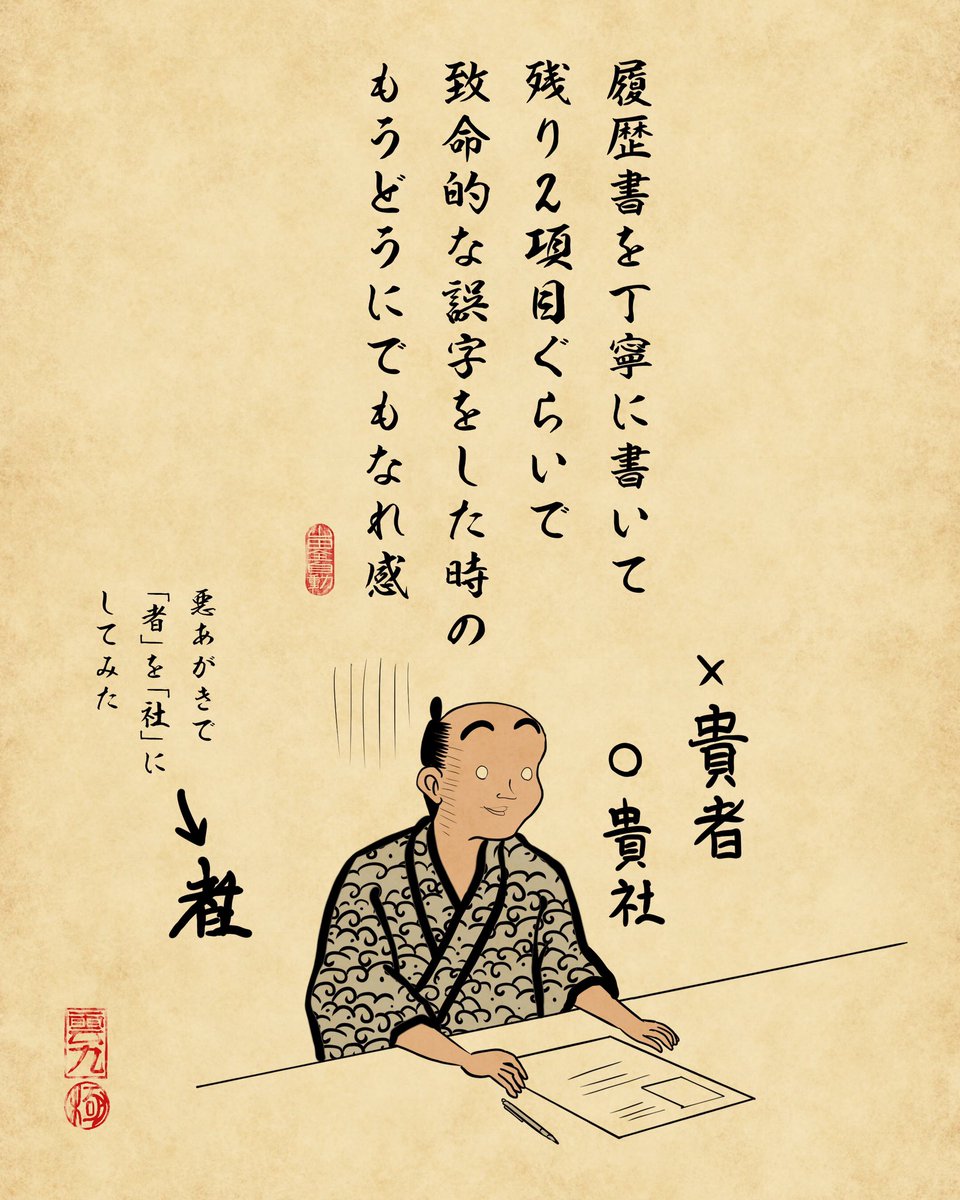 履歴書を丁寧に書いて
残り2項目ぐらいで
致命的な誤字をした時の
もうどうにでもなれ感
× 貴者
○ 貴社
悪あがきで
「者」を「社」に
してみた